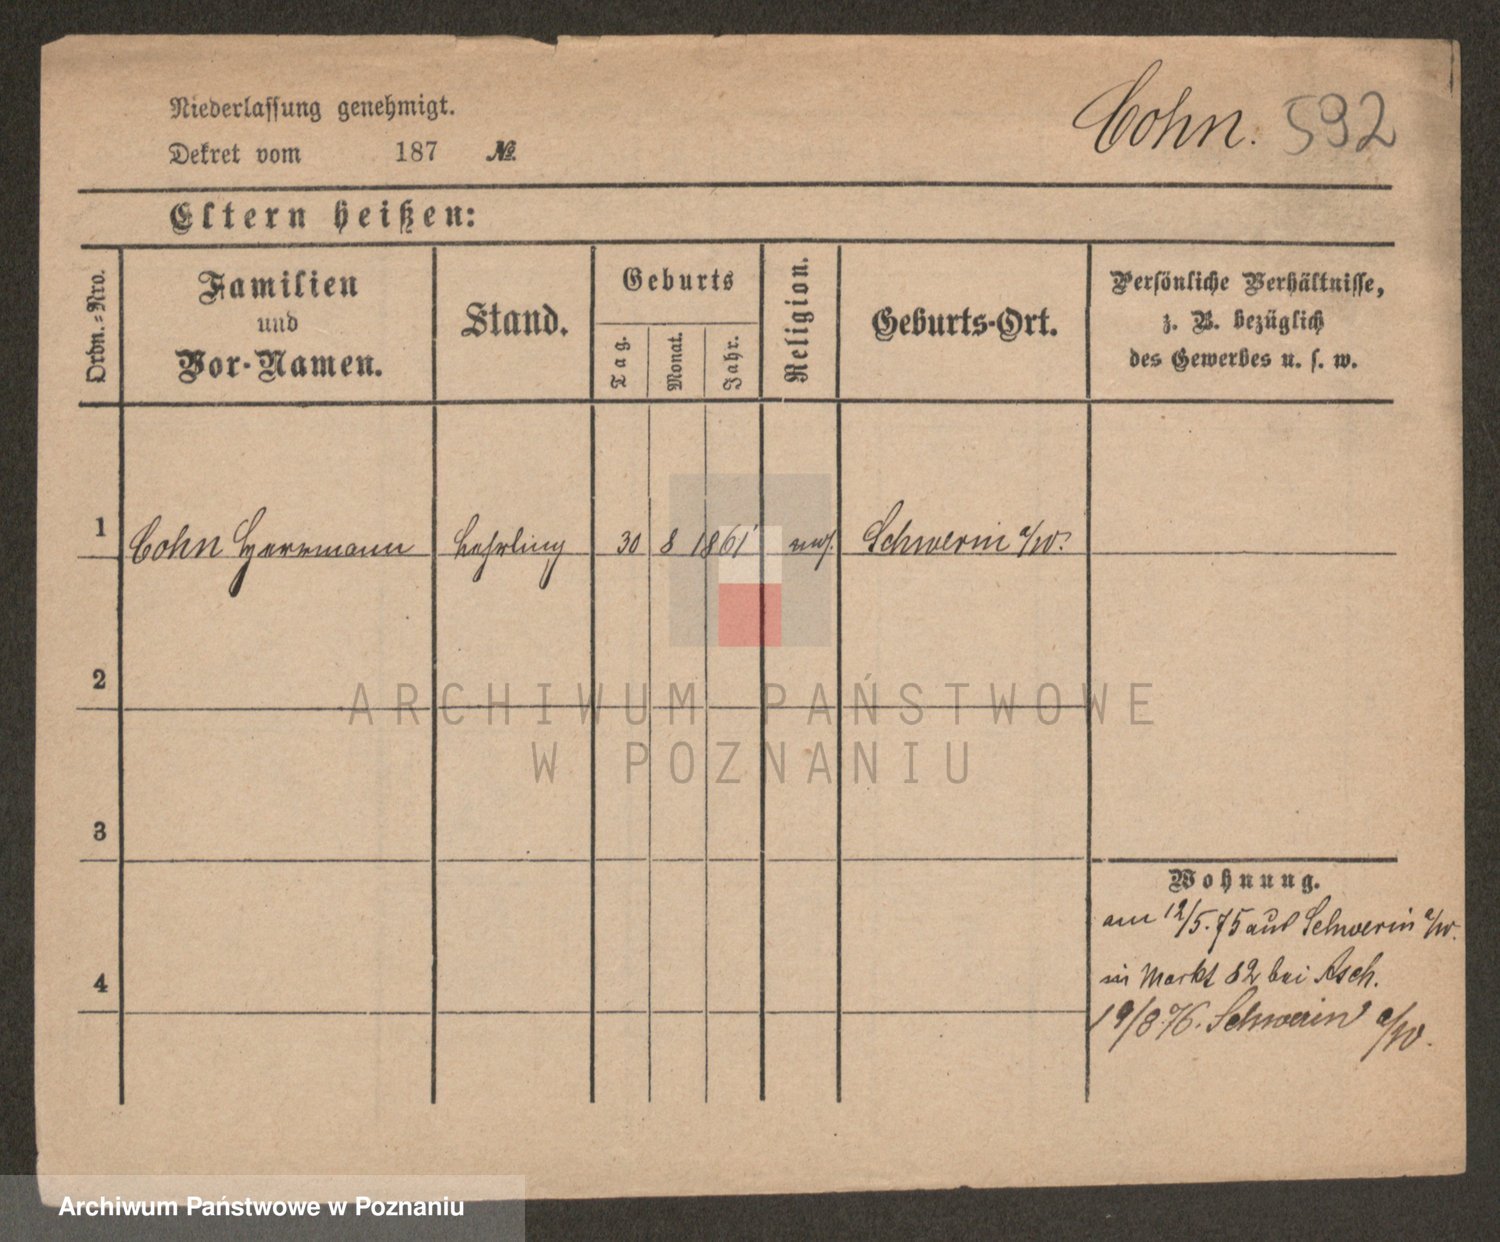 Niederlassung genehmigt.
Cohn. 592
Dekret vom 187 №
Eltern heißen:
Ordn.-Nro.
Familien
und
Vor-Namen.
Stand.
Geburts
Tag.
Monat.
Jahr.
Religion.
Geburts-Ort.
Persönliche Verhältnisse,
z. B. bezüglich
des Gewerbes u. s. w.
1 Cohn Herrmann Lehrling 30 8 1861 mos. Schwerin a/W.
2
3
4
Wohnung.
am 12/5.75 aus Schwerin a/W.
in Markt 82 bei Asch.
19/8.76. Schwerin a/W.
ARCHIWUM PAŃSTWOWE
W POZNANIU
Archiwum Państwowe w Poznaniu